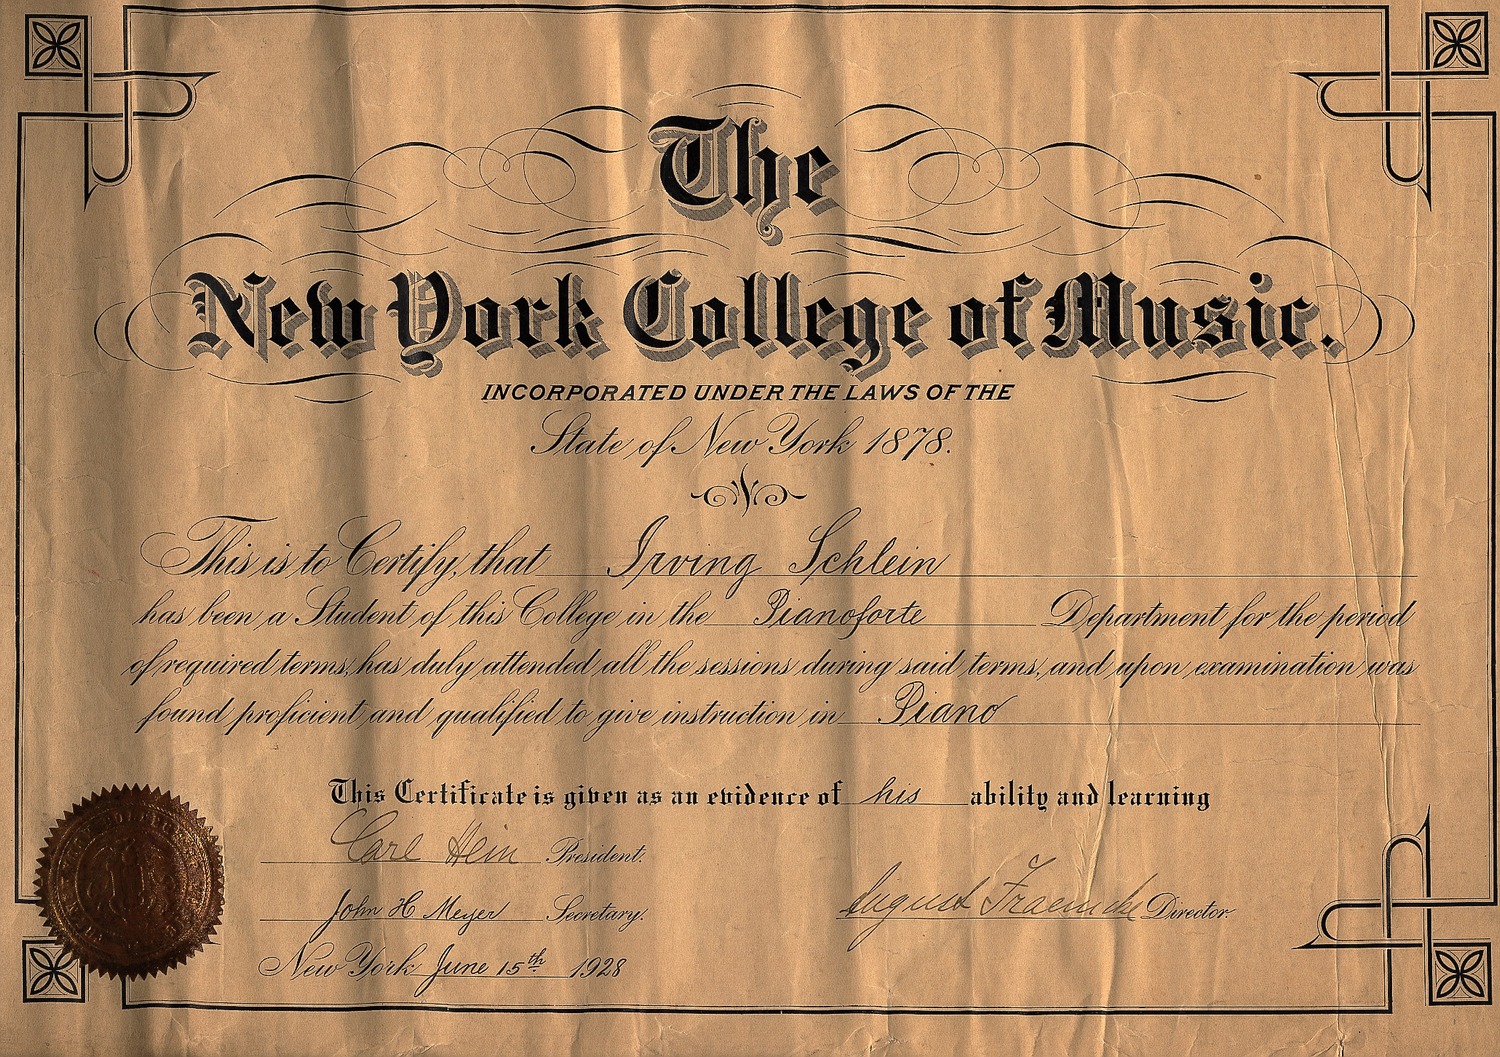 The
New York College of Music.
INCORPORATED UNDER THE LAWS OF THE
State of New York 1878.
This is to Certify, that Irving Schlein
has been a Student of this College in the Pianoforte Department for the period
of required terms, has duly attended all the sessions during said terms, and upon examination was
found proficient and qualified to give instruction in Piano
This Certificate is given as an evidence of his ability and learning
Carl Hein President.
John H Meyer Secretary.
August Fraemcke Director.
New York June 15th 1928